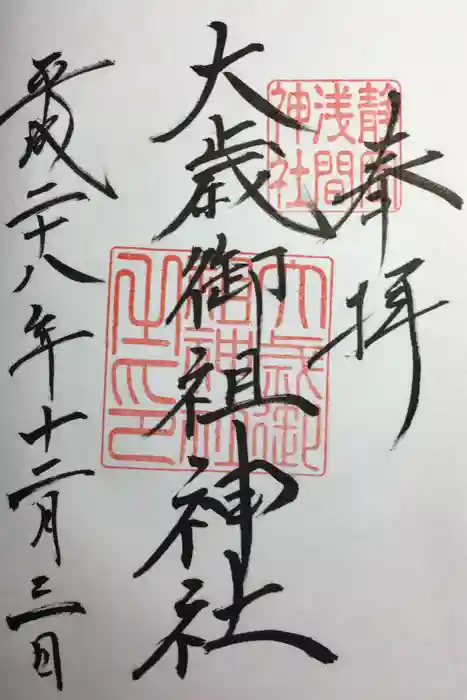 奉拝
静岡浅間神社
大歳御祖神社
大歳御祖神社之印
平成二十八年十二月三日